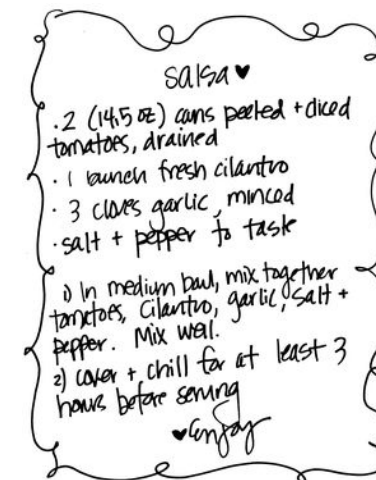 salsa ♥
· 2 (14.5 oz) cans peeled + diced
tomatoes, drained
· 1 bunch fresh cilantro
· 3 cloves garlic, minced
· salt + pepper to taste
1) In medium bowl, mix together
tomatoes, cilantro, garlic, salt +
pepper. Mix well.
2) cover + chill for at least 3
hours before serving
♥ enjoy